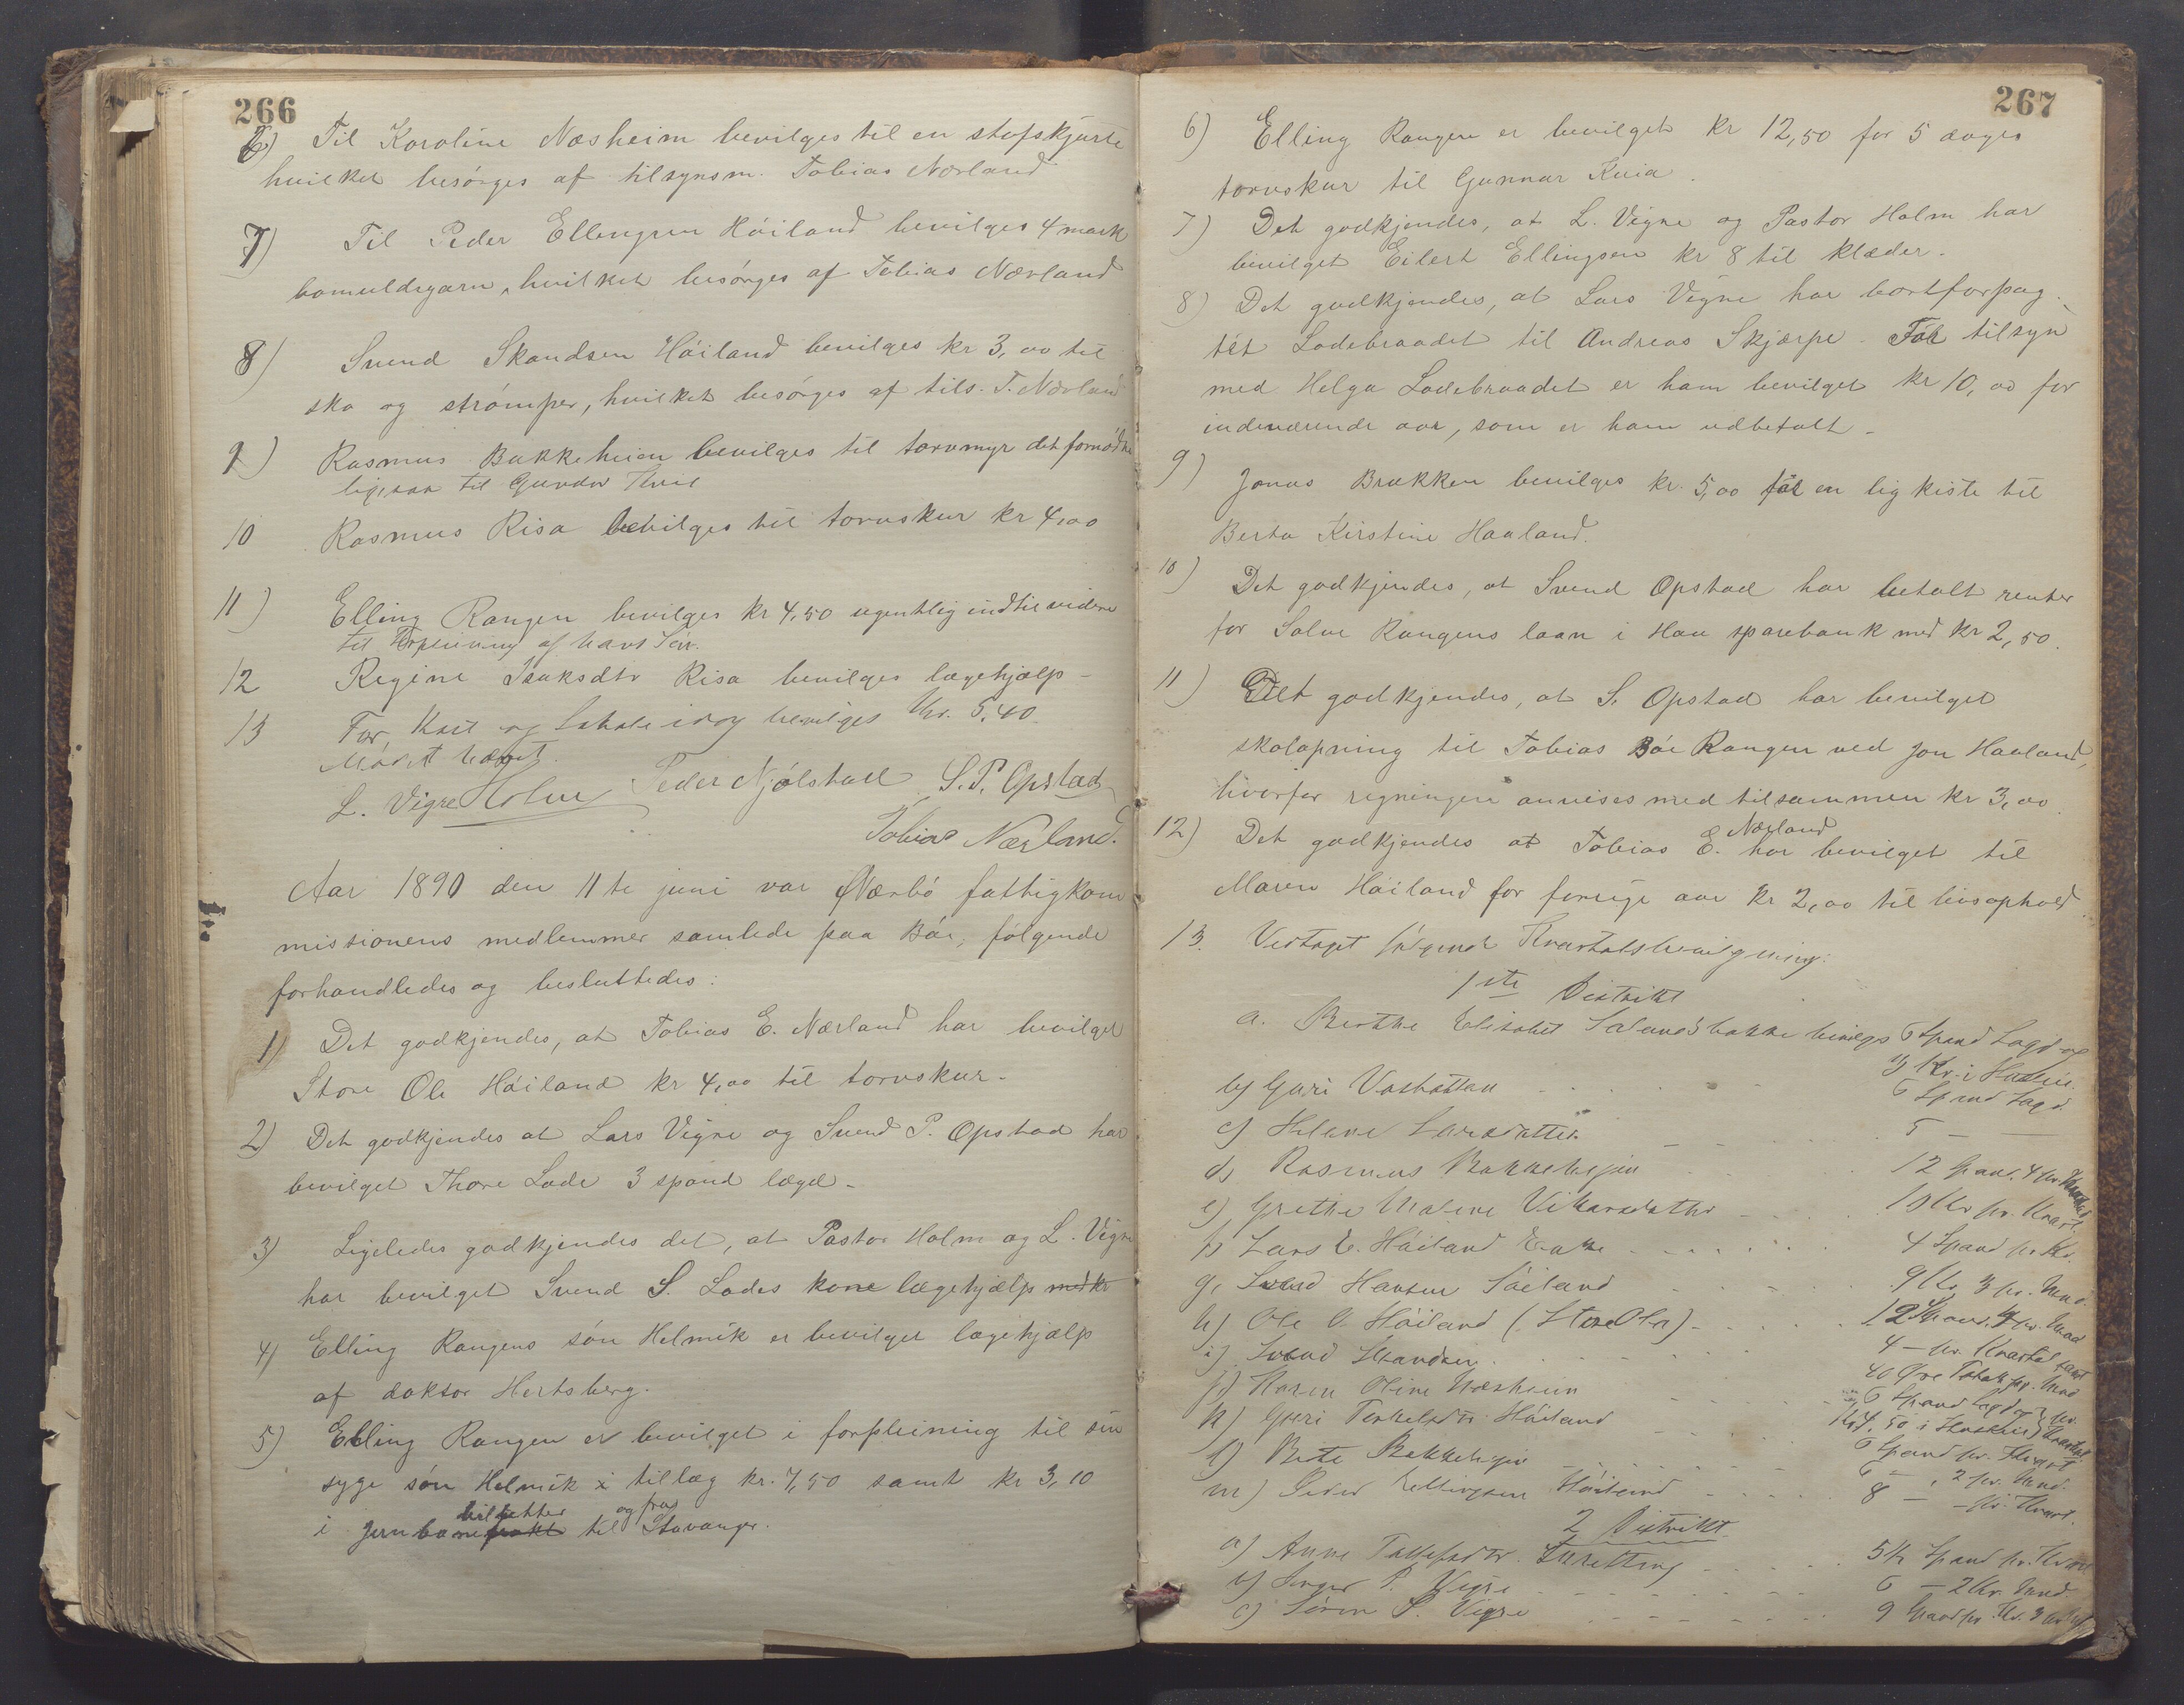 266
6) Til Karoline Næsheim bevilges til en stofskjorte
hvilket besørges af tilsynsm. Tobias Nærland
7) Til Peder Ellingsen Høiland bevilges 4 mark
bomuldsgarn, hvilket besørges af Tobias Nærland
8) Svend Skandsen Høiland bevilges kr 3,00 til
sko og strømper, hvilket besørges af tils. T. Nærland
9) Rasmus Bakkeheien bevilges til torvmyr det fornødne
ligesaa til Gunder
10 Rasmus Risa bevilges til torvskur kr 4,00
11) Elling Rangen bevilges kr 4,50 ugentlig indtil videre
til Forpleining af hans Søn.
12 Regine Isaksdtr Risa bevilges lægehjælp –
13 For Kost og Lokale idag bevilges Kr. 5,40
Mødet hævet.
L. Vigre Holm Peder Njølstad S. P. Opstad
Tobias Nærland.
Aar 1890 den 11te juni var Nærbø fattigkom
missionens medlemmer samlede paa Bøe, følgende
forhandledes og besluttedes:
1) Det godkjendes, at Tobias E. Nærland har bevilget
Store Ole Høiland kr 4,00 til torvskur –
2) Det godkjendes at Lars Vigre og Svend P. Opstad har
bevilget Thore Lode 3 spand lægd –
3) Ligeledes godkjendes det, at Pastor Holm og L. Vigre
har bevilget Svend S. Lodes kone lægehjælp med kr
4) Elling Rangens søn Helmik er bevilget lægehjælp
af doktor Hertsberg.
5) Elling Rangen er bevilget i forpleining til sin
syge søn Helmik i tillæg kr. 7,50 samt kr 3,10
billetter og fra
i Jernbanefrakt til Stavanger.
267
6) Elling Rangen er bevilget kr 12,50 for 5 dages
torvskur til Gunnar Kvia.
7) Det godkjendes, at L. Vigre og Pastor Holm har
bevilget Eilert Ellingsen kr 8 til klæder.
8) Det godkjendes, at Lars Vigre har bortforpag
tet Lodebraadet til Andreas Skjærpe. For tilsyn
med Helga Lodebraadet er ham bevilget kr 10,00 for
indeværende aar, som er ham udbetalt –
9) Jonas Brakken bevilges kr. 5,00 for en ligkiste til
Berta Kirstine Haaland.
10) Det godkjendes, at Svend Opstad har betalt renter
for Salve Rangens laan i Haa sparebank med kr 2,50.
11) Det godkjendes, at S. Opstad har bevilget
skolapning til Tobias Bøe Rangen ved Jon Haaland,
hvorfor regningen anvises med tilsammen kr 3,00
Nærland
12) Det godkjendes at Tobias E. har bevilget til
Maren Høiland for forrige aar kr 2,00 til livsophold
13. Vedtaget følgende Kvartalsbevilgning:
1ste Distrikt
a. Berthe Elisabet bevilges 6 Spand Lagd og
Kr. i
b) Guri 6 Spand Lagd.
c) Helene Larsdatter 5 – –
d) Rasmus Bakkehejen 12 Spand. 4 pr.
e) Grethe Malene Vikarsdatter 10 Kr pr. Kvart.
f) Lars E. Høiland Enke 4 Spand pr. Kv.
g, Svend Hansen 9 Kr 3 pr. Mnd.
h) Ole O. Høiland (Store Ola) 12 Spand. 4 pr. Maa
i) Svend Skandsen 4 – pr. Kvartal samt
40 Øre Tobak pr. Mnd
j) Karen Oline Næsheim 6 Spand Lagd og
k) Guri Torkelsdtr. Høiland
l) Berte Bakkehejen 6 – 2 pr. Mnd.
m) Peder Ellingsen Høiland 8 – – pr. Kvart.
2 Distrikt
a) Anne Tollefsdtr. 5½ Spand pr. Kvart
b) P. Vigre 6 – 2 Kr. Mnd.
c) Søren S. Vigre 9 Spand pr. Kv. 3